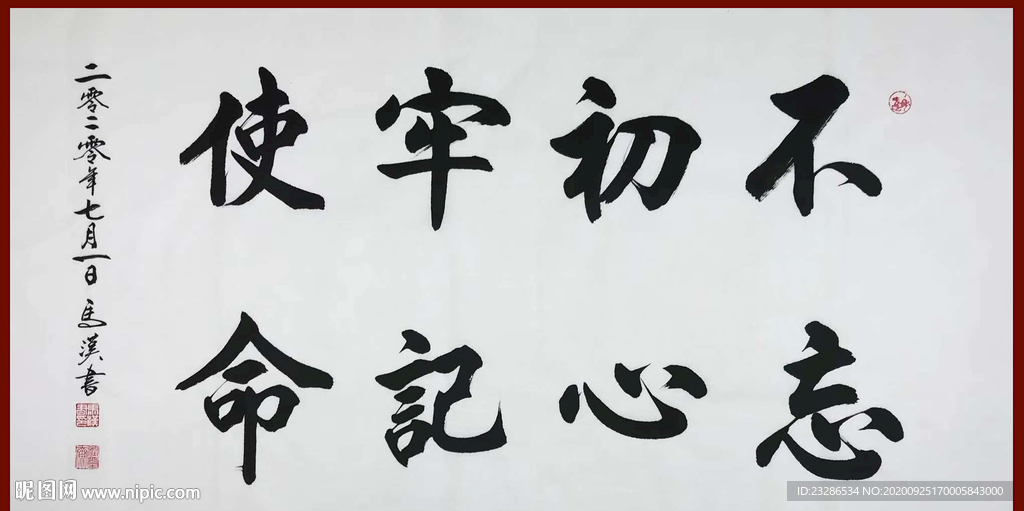 不忘
初心
牢記
使命
二零二零年七月一日 馬漢書
昵图网 www.nipic.com
ID:23286534 NO:20200925170005843000